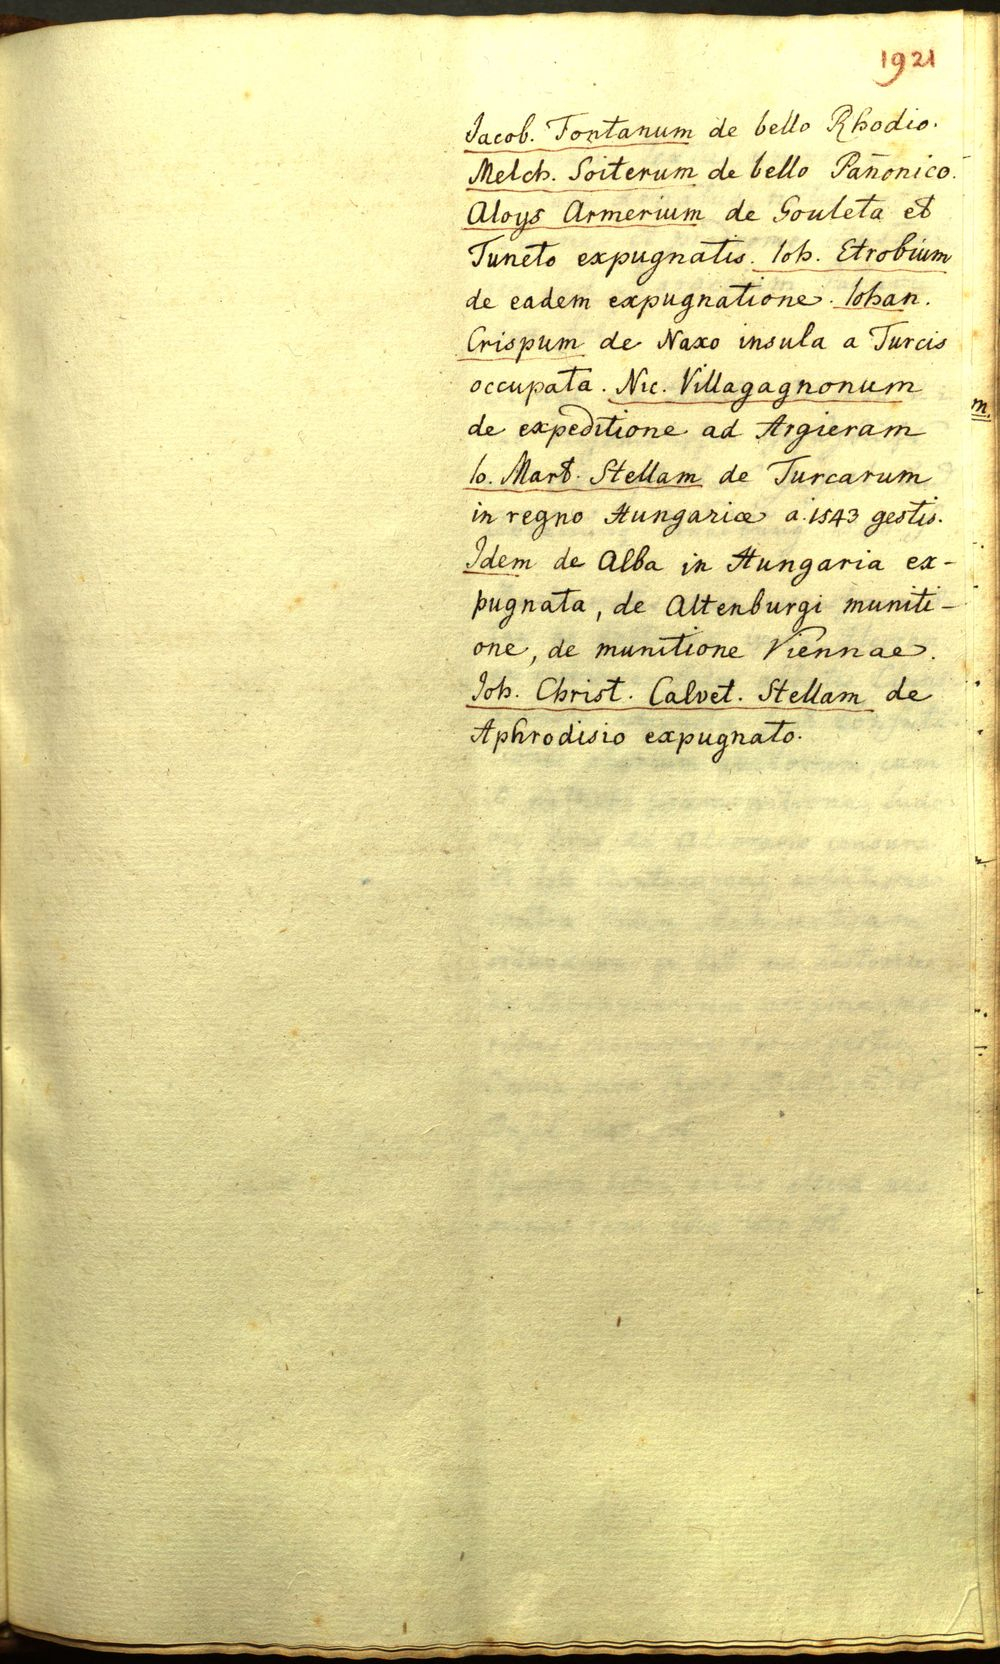 1921
Jacob. Fontanum de bello Rhodio.
Melch. Soiterum de bello Pañonico.
Aloys Armerium de Gouleta et
Tuneto expugnatis. Ioh. Etrobium
de eadem expugnatione. Iohan.
Crispum de Naxo insula a Turcis
occupata. Nic. Villagagnonum
de expeditione ad Argieram
Io. Mart. Stellam de Turcarum
in regno Hungariæ a. 1543 gestis.
Idem de Alba in Hungaria ex-
pugnata, de Altenburgi muniti-
one, de munitione Viennae.
Joh. Christ. Calvet. Stellam de
Aphrodisio expugnato.
m.